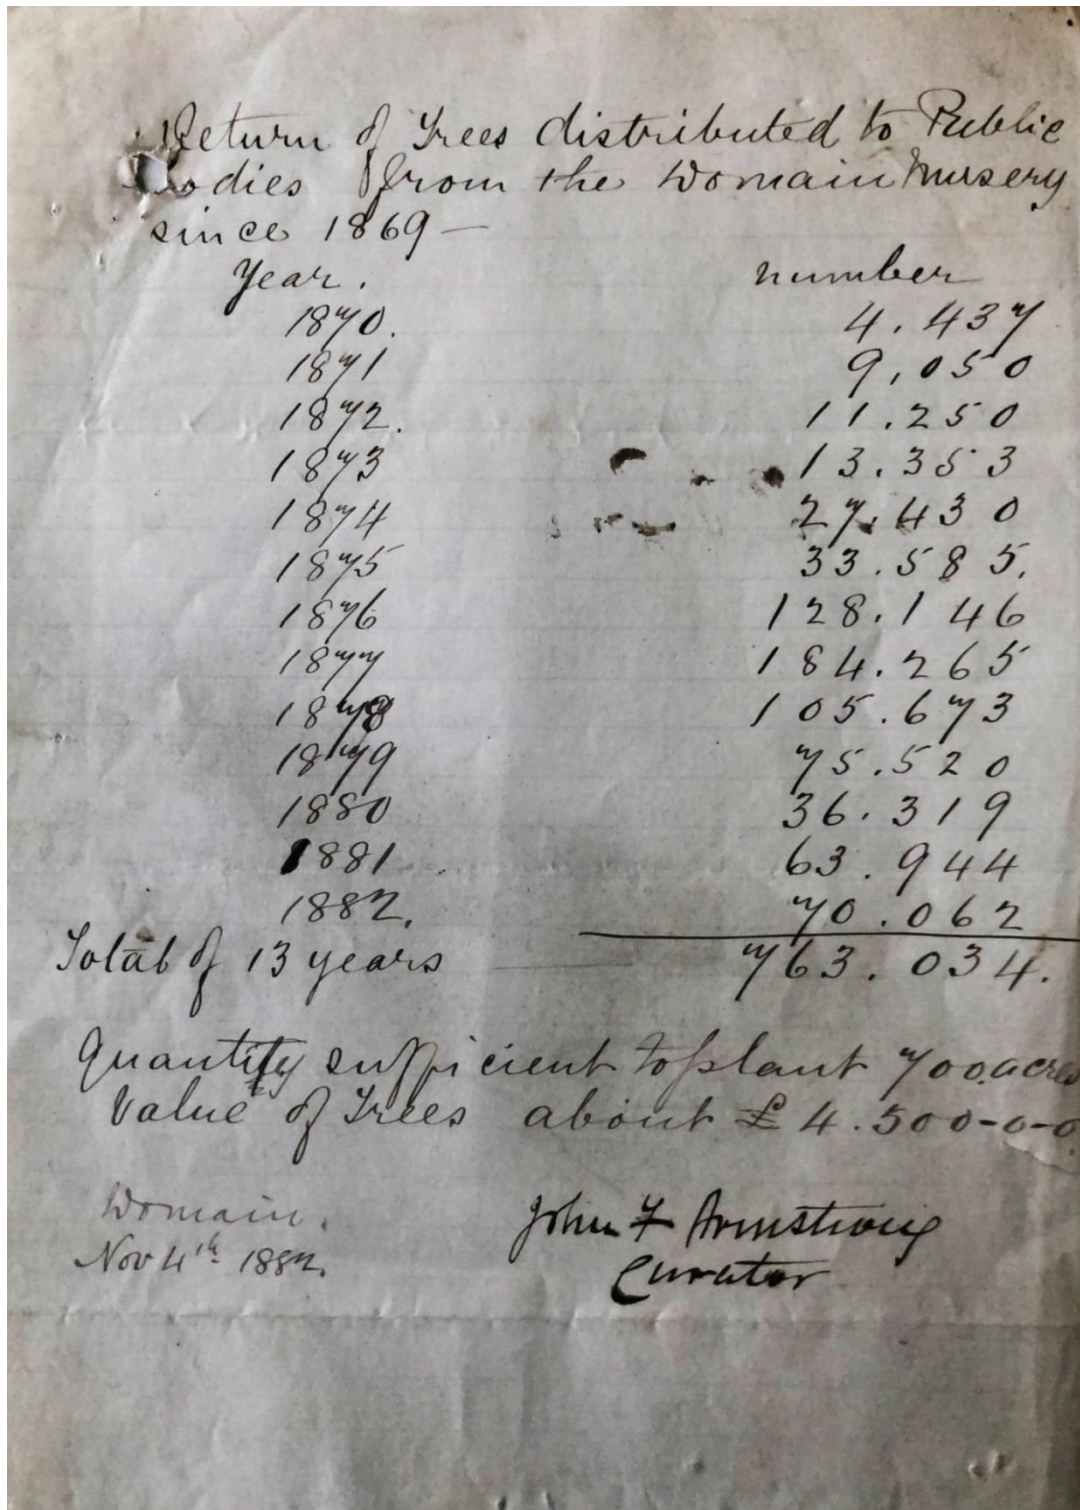 Return of Trees distributed to Public
Bodies from the Domain Nursery
since 1869 —
Year. number
1870. 4.437
1871 9,050
1872. 11.250
1873 13.353
1874 27.430
1875 33.585.
1876 128.146
1877 184.265
1878 105.673
1879 75.520
1880 36.319
1881 63.944
1882. 70.062
Total of 13 years 763.034.
Quantity sufficient to plant 700.acres
Value of Trees about £4.500-0-0
Domain.
Nov 4th 1882.
John F Armstrong
Curator